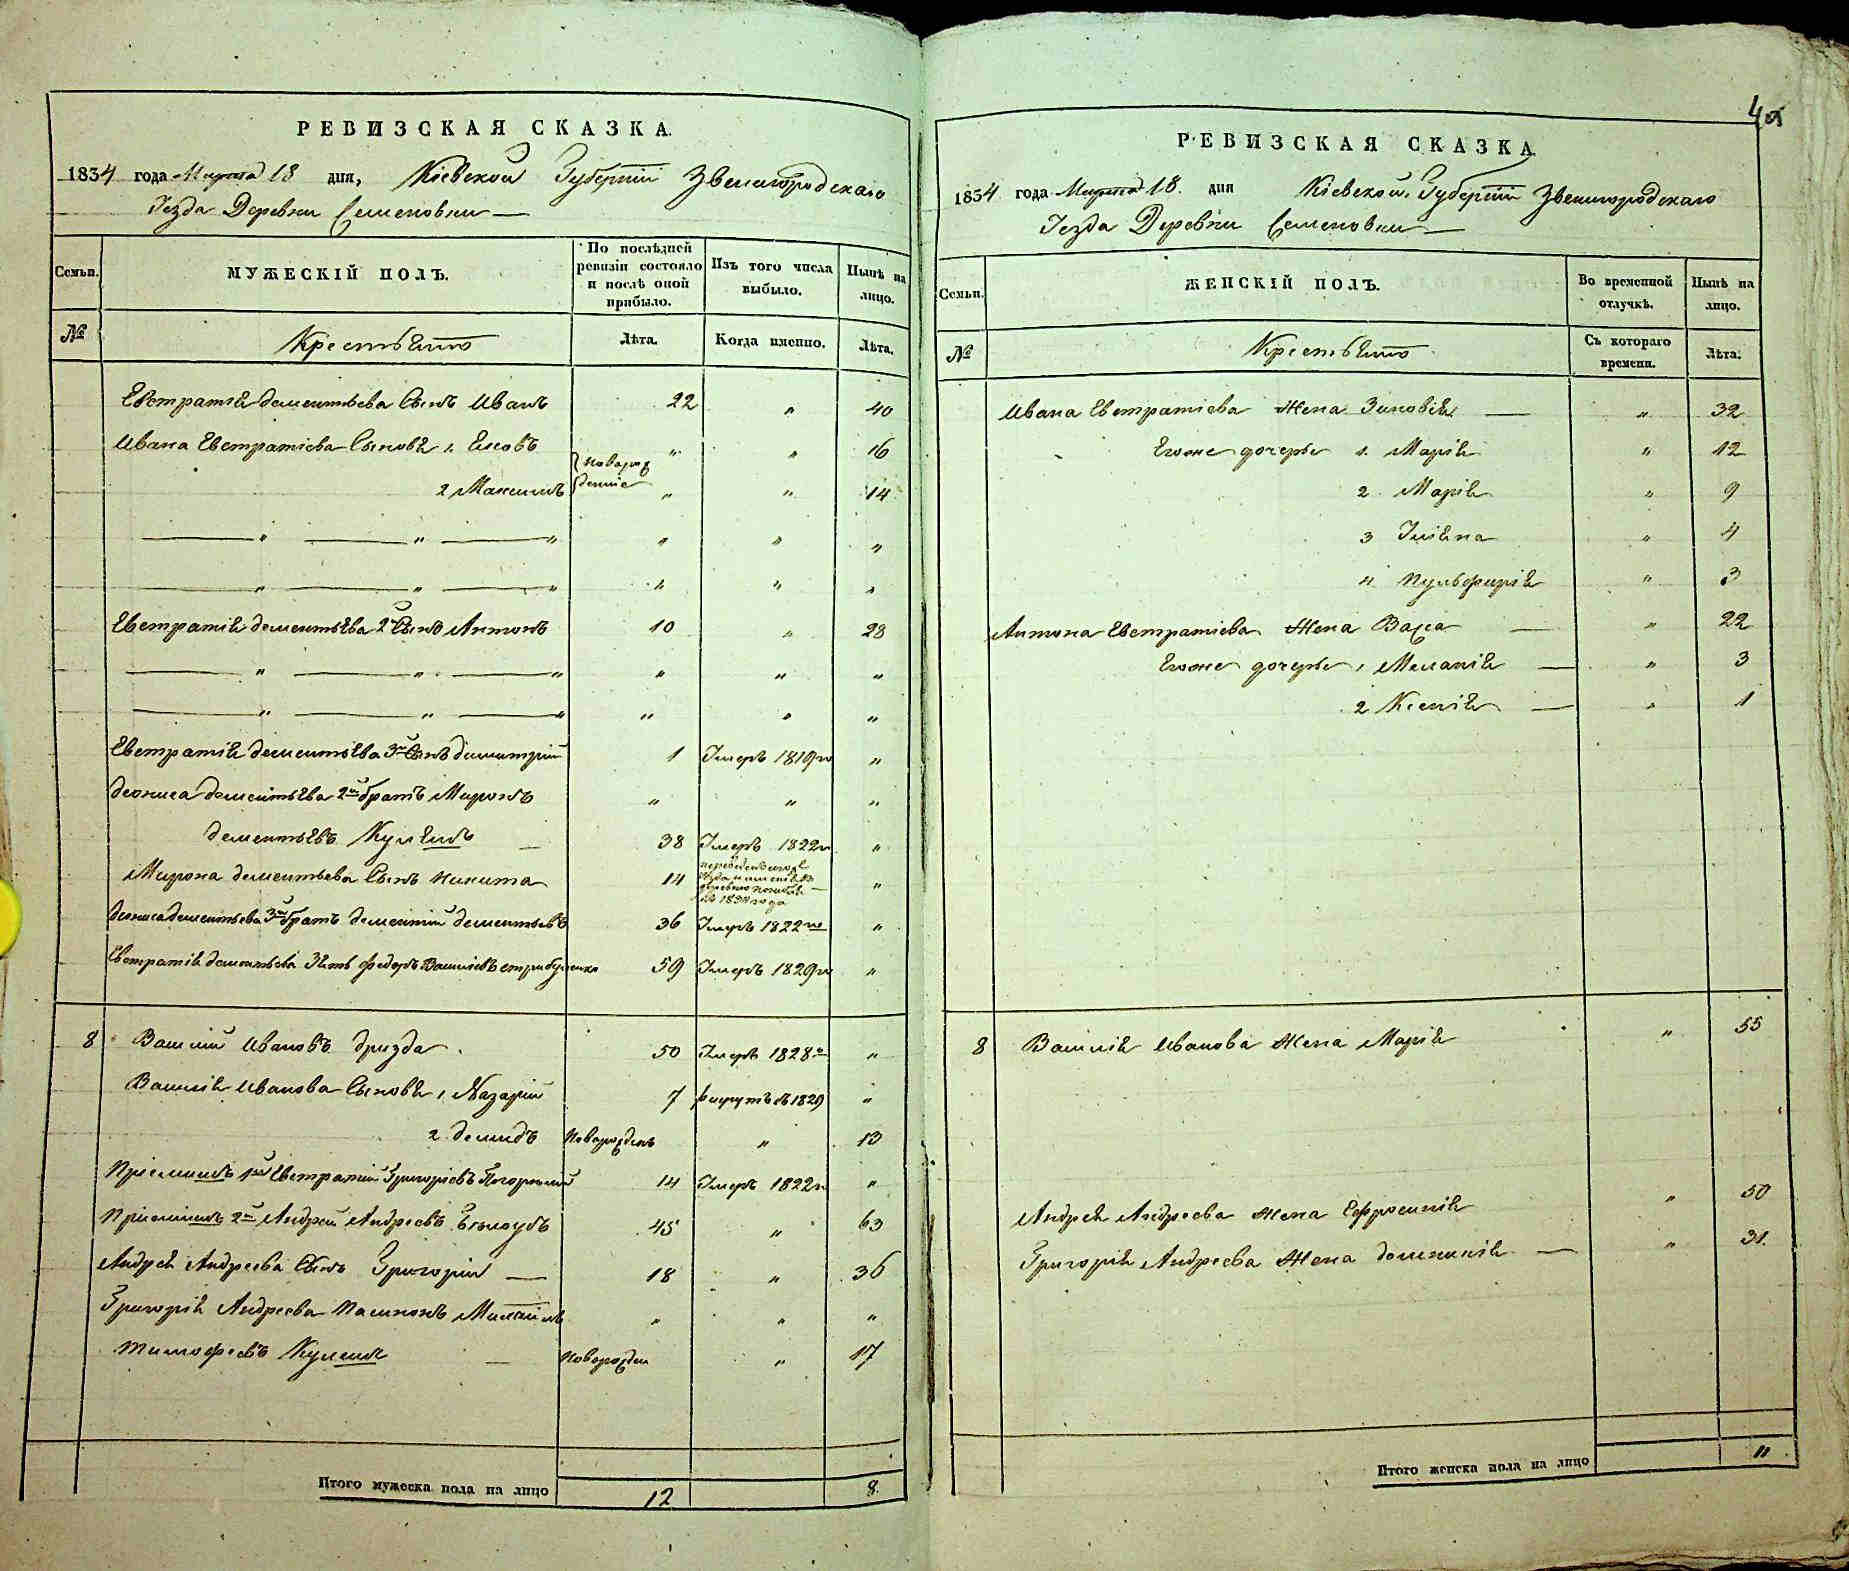 РЕВИЗСКАЯ СКАЗКА.
1834 года Марта 18 дня, Кіевской Губерніи Звенигородскаго
Уезда Деревни Семеновки
Семьи.
МУЖЕСКІЙ ПОЛЪ.
По послѣдней ревизіи состояло и послѣ оной прибыло.
Изъ того числа выбыло.
Нынѣ на лицо.
№
Крестьяне
Лѣта.
Когда именно.
Лѣта.
Евстратія Дементьева Сынъ Иванъ 22 " 40
Ивана Евстратіева Сыновья 1. " " 16
2 Максимъ " " 14
новорож
денніе
" " " " " "
" " " " " "
Евстратія Дементьева 2й Сынъ Антонъ 10 " 28
" " " " " "
" " " " " "
Евстратія Дементьева 3й Сынъ Димитрій 1 Умеръ 1819го "
Дениса Дементьева 2й братъ Миронъ " " "
Дементьевъ 38 Умеръ 1822го "
Мирона Дементьева Сынъ Никита 14 "
Дениса Дементьева 3й братъ Дементій Дементьевъ 36 Умеръ 1822го "
Евстратія Дементьева Зять Федоръ Васильевъ 59 Умеръ 1829го "
8 Василій Ивановъ Дризда 50 Умеръ 1828го "
Василія Иванова Сыновья 1 Назарій 7 рекрутъ въ 1829 "
2 Демидъ Новорожденъ " 13
Пріемишъ 1й Евстратій Григоріевъ 14 Умеръ 1822го "
Пріемишъ 2й Андрей Андреевъ 45 " 63
Андрея Андреева Сынъ Григорій 18 " 36
Григорія Андреева Пасинокъ " " "
Тимофеевъ Новорожден " 17
Итого мужеска пола на лицо 12 8
4об
РЕВИЗСКАЯ СКАЗКА
1834 года Марта 18. дня Кіевской Губерніи Звенигородскаго
Уезда Деревни Семеновки
Семьи.
ЖЕНСКІЙ ПОЛЪ.
Во временной отлучкѣ.
Нынѣ на лицо.
№
Крестьяне
Съ котораго времени.
Лѣта.
Ивана Евстратіева Жена Зиновія " 32
Егоже дочери 1. Марія " 12
2. Марія " 9
3 Уліяна " 4
4 " 3
Антона Евстратіева Жена Васса " 22
Егоже дочери 1 Меланія " 3
2 Ксенія " 1
8 Василія Иванова Жена Марія " 55
Андрея Андреева Жена Ефросинія " 50
Григорія Андреева Жена Домникія " 31.
Итого женска пола на лицо 11